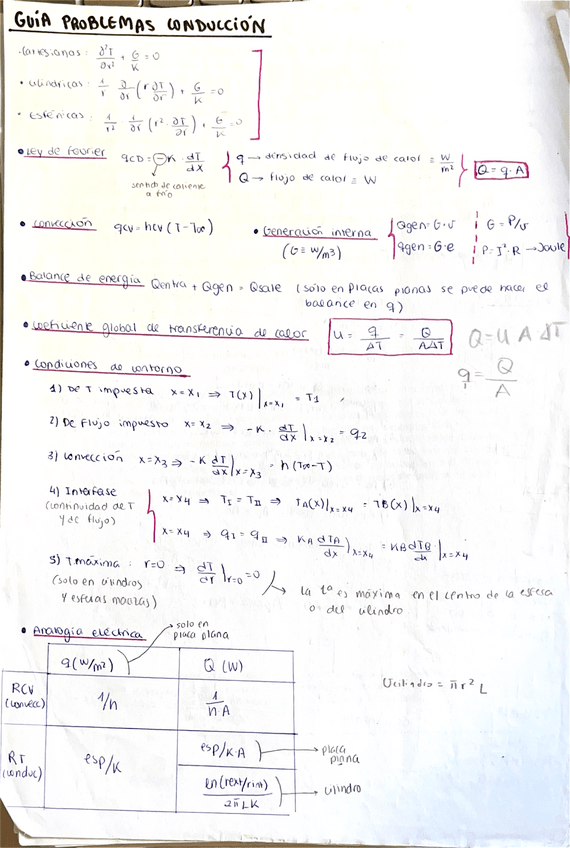 GUÍA PROBLEMAS CONDUCCIÓN
· Cartesianas: ∂²T/∂x² + G/K = 0
• Cilíndricas: 1/r ∂/∂r (r ∂T/∂r) + G/K = 0
• Esféricas: 1/r² · ∂/∂r (r² · ∂T/∂r) + G/K = 0
• Ley de Fourier qCD = -K · dT/dX
sentido de caliente a frío
q → densidad de flujo de calor ≡ W/m²
Q → flujo de calor ≡ W
Q = q · A
• Convección qcv = hcv (T - T∞)
• Generación interna
(G ≡ W/m3)
Qgen = G · v
qgen = G · e
G = P/v
P = I² · R → Joule
• Balance de energía Qentra + Qgen = Qsale (sólo en placas planas se puede hacer el
balance en q)
• Coeficiente global de transferencia de calor U = q/ΔT = Q/AΔT
Q = U A ΔT
q = Q/A
• Condiciones de contorno
1) De T impuesta x = x1 ⇒ T(x)|x=x1 = T1
2) De Flujo impuesto x = x2 ⇒ -K · dT/dX|x=x2 = q2
3) Convección x = x3 ⇒ -K dT/dX|x=x3 = h(T∞-T)
4) Interfase
(continuidad de T
y de flujo)
x = x4 ⇒ TI = TII ⇒ TA(x)|x=x4 = TB(x)|x=x4
x = x4 ⇒ qI = qII ⇒ KA dTA/dx)x=x4 = KB dTB/dx|x=x4
5) T máxima: r=0 ⇒ dT/dr|r=0 = 0
(solo en cilindros
y esferas macizas)
→ la Tª es máxima en el centro de la esfera
o del cilindro.
• Analogía eléctrica
→ solo en
placa plana
q (W/m2) Q (W)
RCV
(convecc) 1/h 1/hA
RT
(conduc) esp/K esp/K·A → placa
plana
ln(rext/rint)/2πLK → cilindro
Vcilindro = π r² L